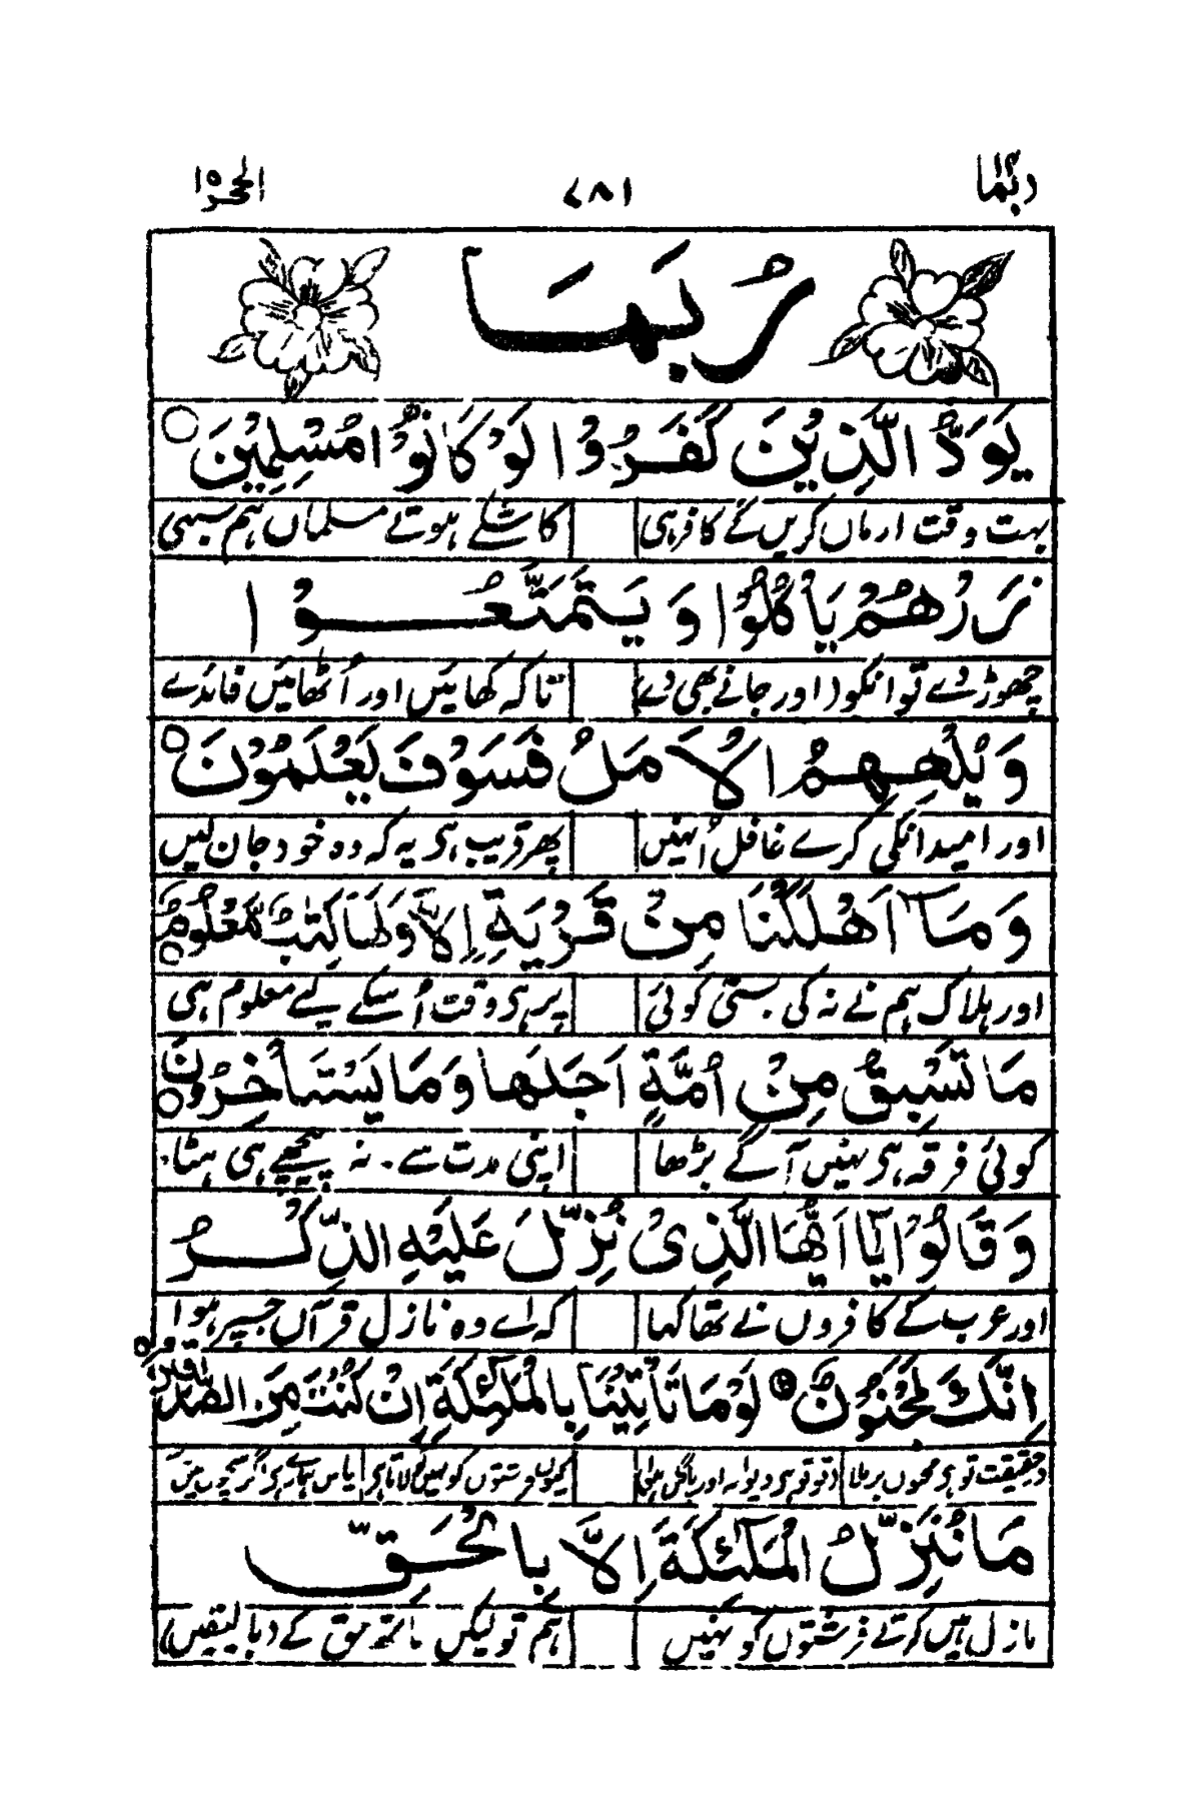 ربما ۱۴ ۷۸۱ الحجر ۱۵
رُبَمَا
يَوَدُّ الَّذِيْنَ كَفَرُوْا لَوْ كَانُوْا مُسْلِمِيْنَ ○
بہت وقت ارماں کریں گے کافر ہی کاشکے ہوتے مسلماں ہم سبہی
ذَرْهُمْ يَأْكُلُوْا وَيَتَمَتَّعُوْا
چھوڑ دے تو انکو (اور جانے بھی دے) تاکہ کھائیں اور اُٹھائیں فائدے
وَيُلْهِهِمُ الْاَمَلُ فَسَوْفَ يَعْلَمُوْنَ ○
اور امید انکی کرے غافل اُنہیں پھر قریب ہی یہ کہ وہ خود جان لیں
وَمَآ اَهْلَكْنَا مِنْ قَرْيَةٍ اِلَّا وَلَهَا كِتَابٌ مَّعْلُوْمٌ ○
اور ہلاک ہم نے نہ کی بستی کوئی پر ہی وقت اُسکے لیے معلوم ہی
مَا تَسْبِقُ مِنْ اُمَّةٍ اَجَلَهَا وَمَا يَسْتَأْخِرُوْنَ ○
کوئی فرقہ ہی نہیں آگے بڑھا اپنی مدت سے۔ نہ پیچھے ہی ہٹا۔
وَقَالُوْا يٰٓاَيُّهَا الَّذِىْ نُزِّلَ عَلَيْهِ الذِّكْرُ
اور عرب کے کافروں نے تھا کہا کہ اے وہ نازل قرآں جسپر ہوا
اِنَّكَ لَمَجْنُوْنٌ ○ لَوْمَا تَأْتِيْنَا بِالْمَلٰٓئِكَةِ اِنْ كُنْتَ مِنَ الصّٰدِقِيْنَ ○
درحقیقت تو ہی مجنوں برملا (تو تو ہی دیوانہ اور پاگل کیوں فرشتوں کو نہیں لاتا پاس ہمارے گر سچوں میں
مَا نُنَزِّلُ الْمَلٰٓئِكَةَ اِلَّا بِالْحَقِّ
نازل ہیں کرتے فرشتوں کو نہیں ہم تو لیکن ساتھ حق کے (بالیقیں)